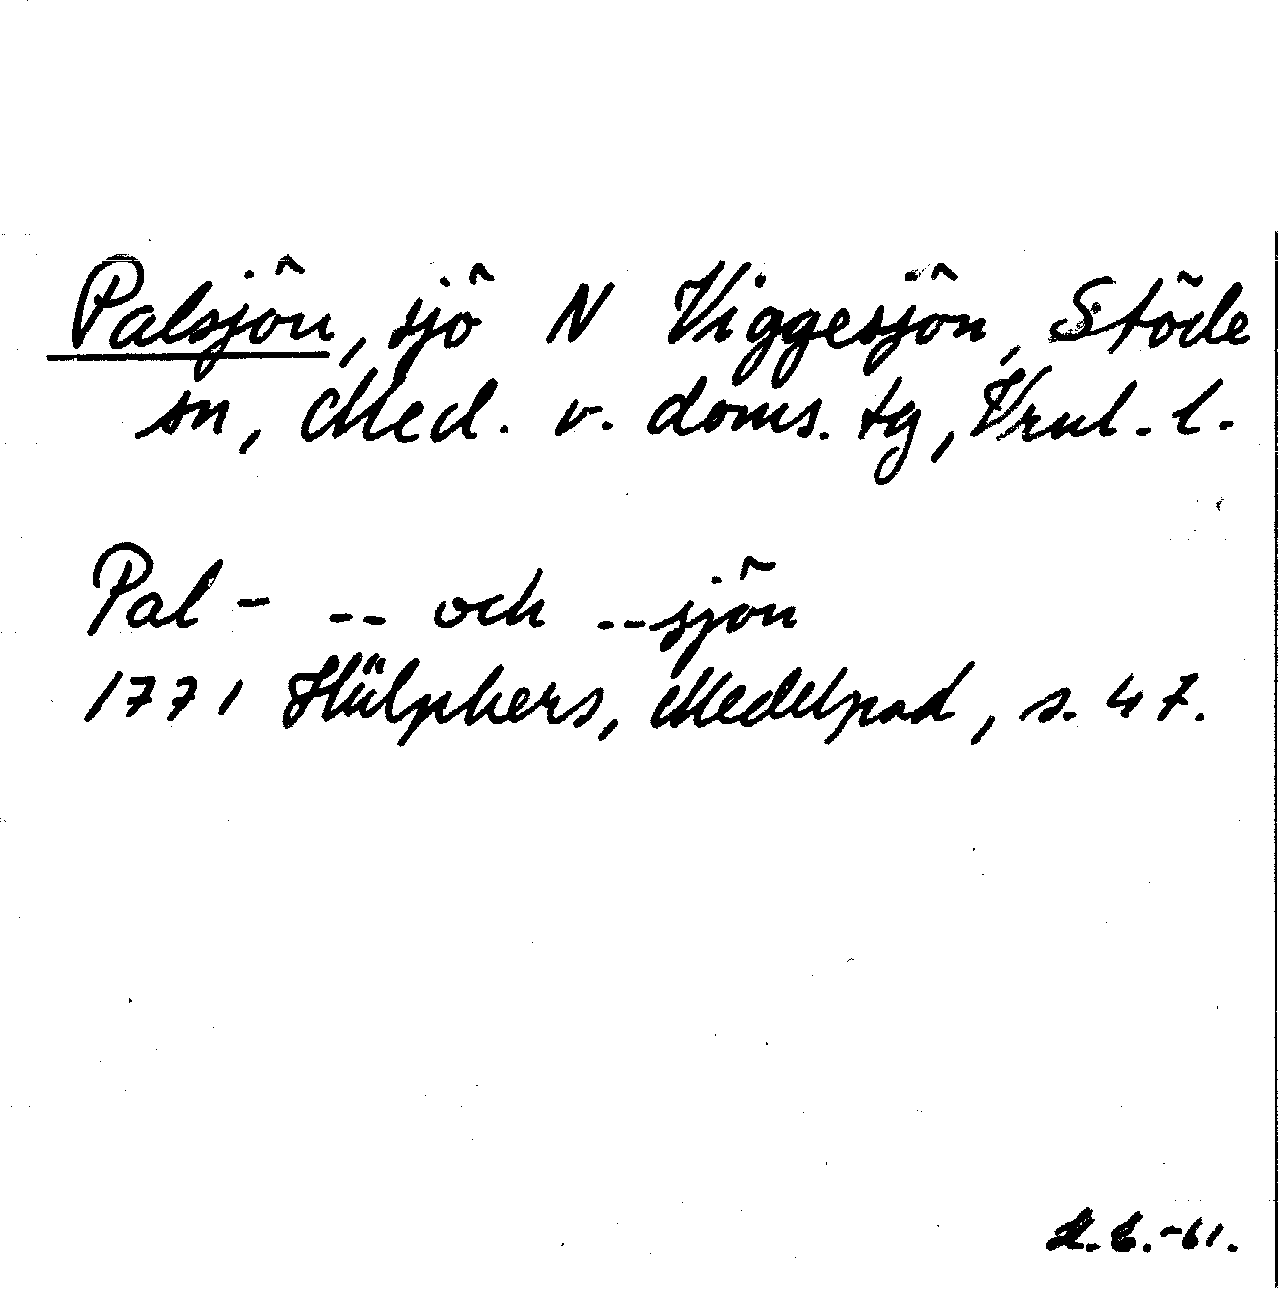 Palsjön, sjö N Viggesjön, Stöde
sn, Med. v. doms. tg, Vrnl. l.
Pal- -- och --sjön
1771 Hülphers, Medelpad, s. 47.
-61.